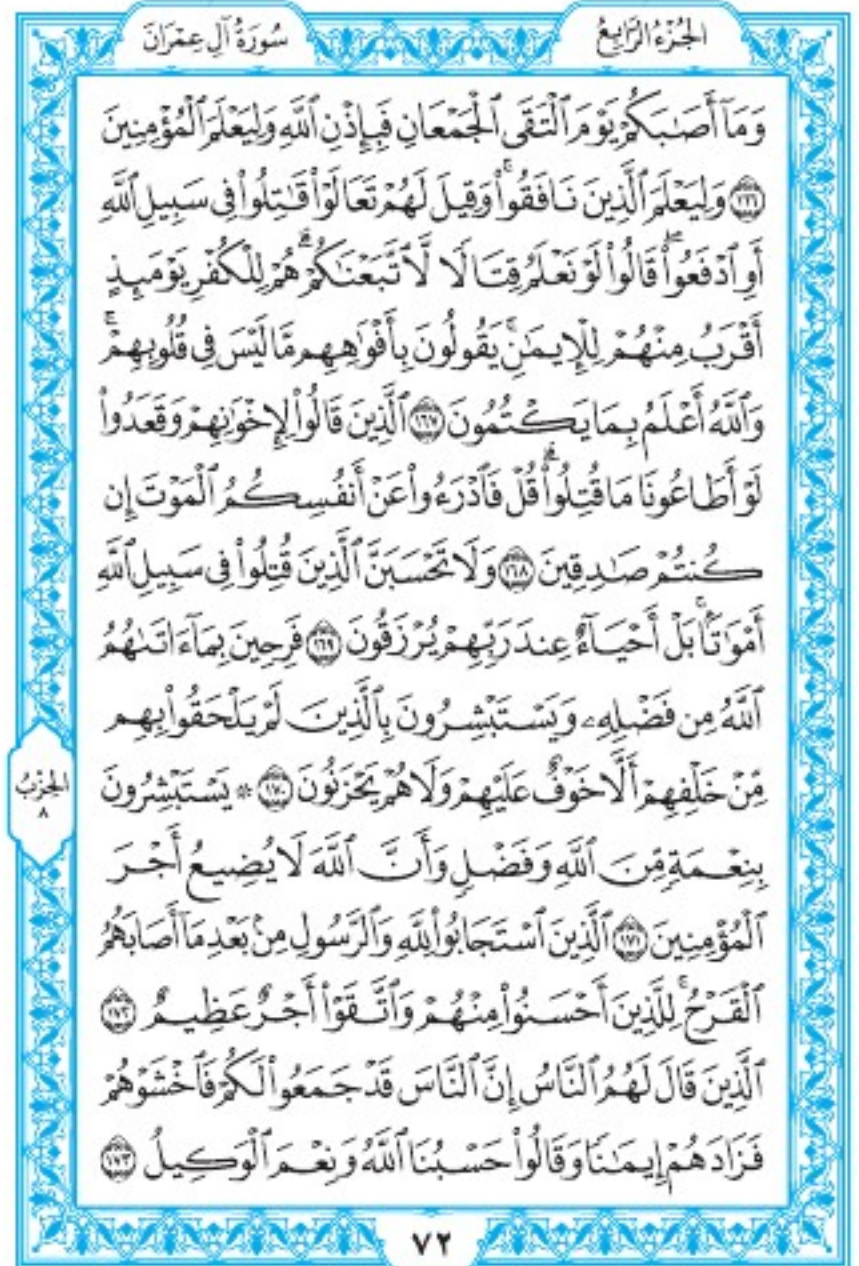 الجُزْءُ الرَّابِعُ
سُورَةُ آلِ عِمْرَانَ
وَمَآ أَصَٰبَكُمْ يَوْمَ ٱلْتَقَى ٱلْجَمْعَانِ فَبِإِذْنِ ٱللَّهِ وَلِيَعْلَمَ ٱلْمُؤْمِنِينَ
١٦٦ وَلِيَعْلَمَ ٱلَّذِينَ نَافَقُوا۟ۚ وَقِيلَ لَهُمْ تَعَالَوْا۟ قَٰتِلُوا۟ فِى سَبِيلِ ٱللَّهِ
أَوِ ٱدْفَعُوا۟ۖ قَالُوا۟ لَوْ نَعْلَمُ قِتَالًا لَّٱتَّبَعْنَٰكُمْۗ هُمْ لِلْكُفْرِ يَوْمَئِذٍ
أَقْرَبُ مِنْهُمْ لِلْإِيمَٰنِۚ يَقُولُونَ بِأَفْوَٰهِهِم مَّا لَيْسَ فِى قُلُوبِهِمْۚ
وَٱللَّهُ أَعْلَمُ بِمَا يَكْتُمُونَ ١٦٧ ٱلَّذِينَ قَالُوا۟ لِإِخْوَٰنِهِمْ وَقَعَدُوا۟
لَوْ أَطَاعُونَا مَا قُتِلُوا۟ۗ قُلْ فَٱدْرَءُوا۟ عَنْ أَنفُسِكُمُ ٱلْمَوْتَ إِن
كُنتُمْ صَٰدِقِينَ ١٦٨ وَلَا تَحْسَبَنَّ ٱلَّذِينَ قُتِلُوا۟ فِى سَبِيلِ ٱللَّهِ
أَمْوَٰتًۢاۚ بَلْ أَحْيَآءٌ عِندَ رَبِّهِمْ يُرْزَقُونَ ١٦٩ فَرِحِينَ بِمَآ ءَاتَىٰهُمُ
ٱللَّهُ مِن فَضْلِهِۦ وَيَسْتَبْشِرُونَ بِٱلَّذِينَ لَمْ يَلْحَقُوا۟ بِهِم
مِّنْ خَلْفِهِمْ أَلَّا خَوْفٌ عَلَيْهِمْ وَلَا هُمْ يَحْزَنُونَ ١٧٠ * يَسْتَبْشِرُونَ
بِنِعْمَةٍ مِّنَ ٱللَّهِ وَفَضْلٍ وَأَنَّ ٱللَّهَ لَا يُضِيعُ أَجْرَ
ٱلْمُؤْمِنِينَ ١٧١ ٱلَّذِينَ ٱسْتَجَابُوا۟ لِلَّهِ وَٱلرَّسُولِ مِنۢ بَعْدِ مَآ أَصَابَهُمُ
ٱلْقَرْحُۚ لِلَّذِينَ أَحْسَنُوا۟ مِنْهُمْ وَٱتَّقَوْا۟ أَجْرٌ عَظِيمٌ ١٧٢
ٱلَّذِينَ قَالَ لَهُمُ ٱلنَّاسُ إِنَّ ٱلنَّاسَ قَدْ جَمَعُوا۟ لَكُمْ فَٱخْشَوْهُمْ
فَزَادَهُمْ إِيمَٰنًا وَقَالُوا۟ حَسْبُنَا ٱللَّهُ وَنِعْمَ ٱلْوَكِيلُ ١٧٣
الحِزْبُ
٨
٧٢